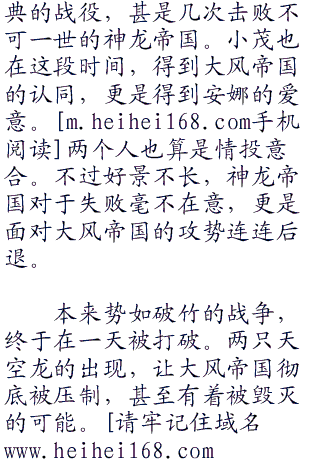 典的战役，甚是几次击败不
可一世的神龙帝国。小茂也
在这段时间，得到大风帝国
的认同，更是得到安娜的爱
意。[m.heihei168.com手机
阅读]两个人也算是情投意
合。不过好景不长，神龙帝
国对于失败毫不在意，更是
面对大风帝国的攻势连连后
退。
本来势如破竹的战争，
终于在一天被打破。两只天
空龙的出现，让大风帝国彻
底被压制，甚至有着被毁灭
的可能。[请牢记住域名
www.heihei168.com